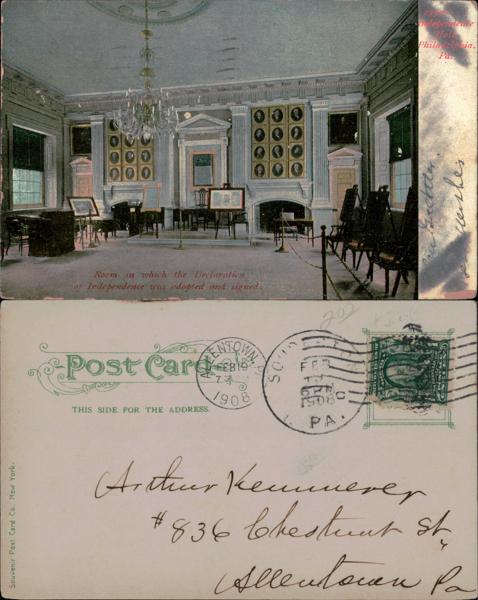 Independence
Hall,
Philadelphia,
Pa.
wishes
Room in which the Declaration
of Independence was adopted and signed.
202
Post Card
THIS SIDE FOR THE ADDRESS.
ALLENTOWN, PA.
FEB 19
7- A
1908
FEB
1908
PA.
Arthur Kemmerer
#836 Chestnut St,
Allentown Pa
Souvenir Post Card Co., New York.